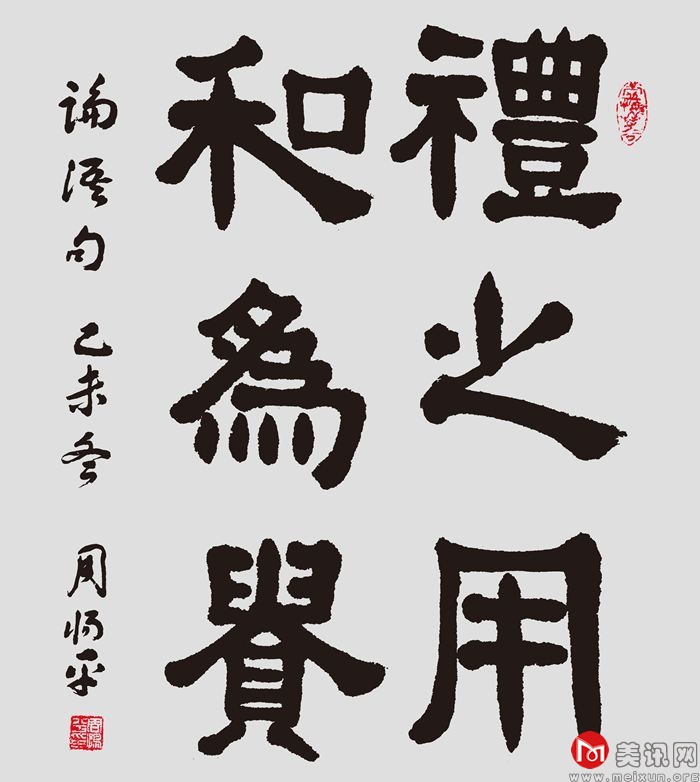 禮之用
和為貴
論語句 己未冬 周
美讯网
www.meixun.org